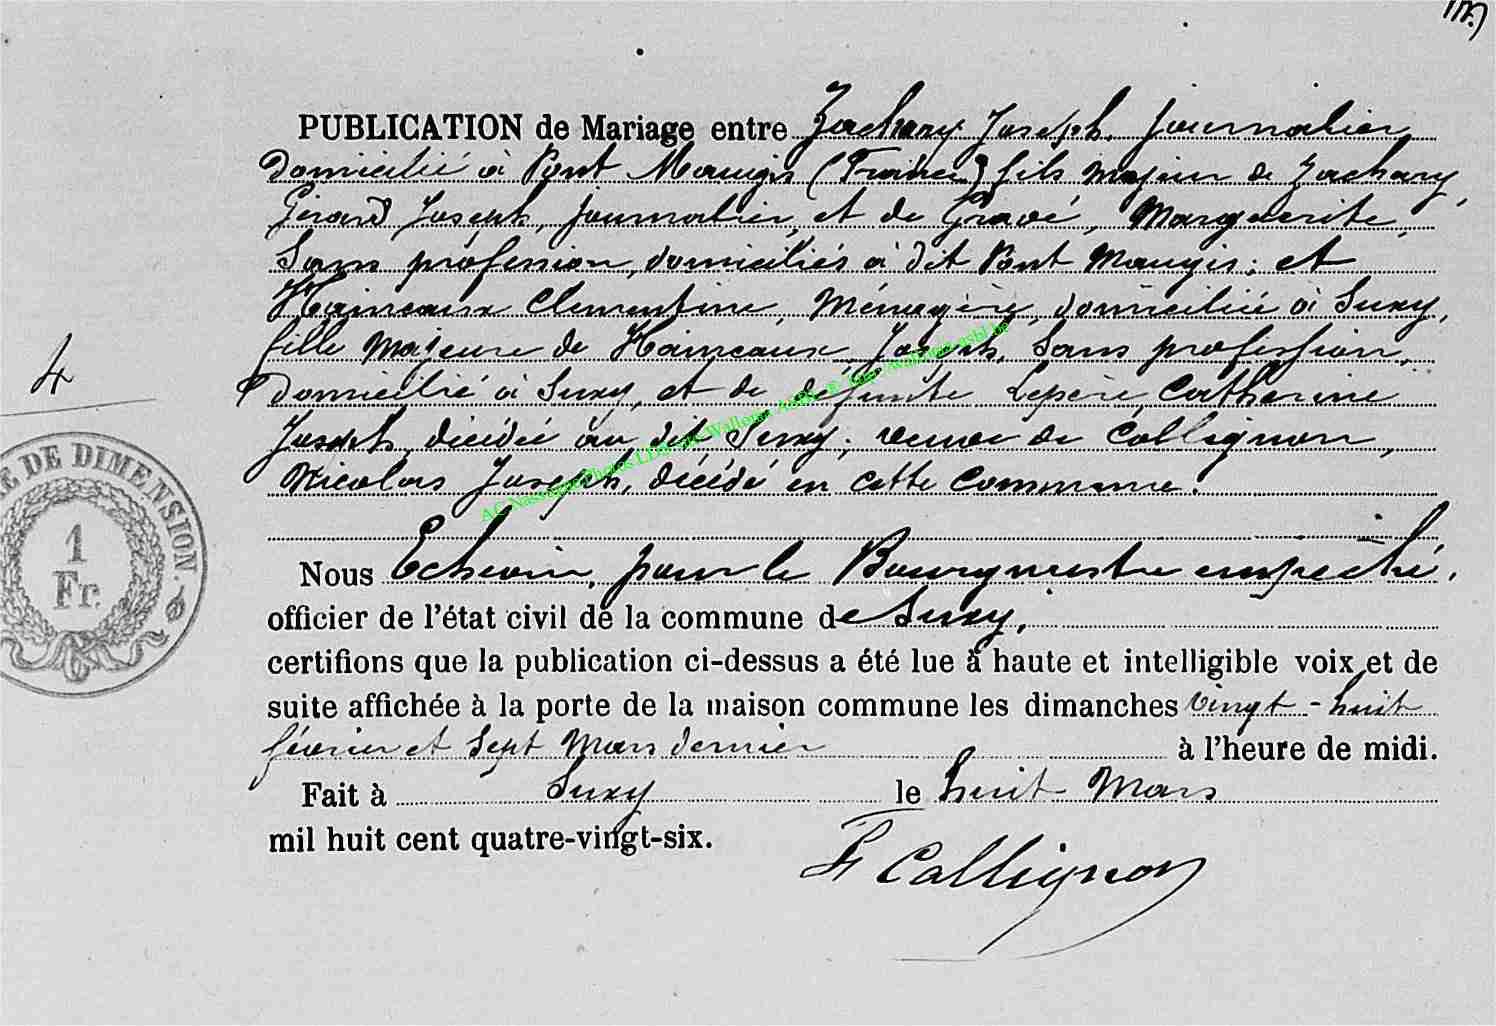 PUBLICATION de Mariage entre Zachary Joseph, journalier,
domicilié à Pont Maugis (France) fils majeur de Zachary,
Gérard Joseph, journalier, et de Gravé, Marguerite,
Sans profession, domiciliés à dit Pont Maugis; et
Haineaux Clementine, Ménagère, domiciliée à Suxy,
fille Majeure de Haineaux, Joseph, Sans profession,
Domicilié à Suxy, et de défunte Lepère Catherine
4
Joseph, décédée au dit Suxy; veuve de Collignon,
Nicolas Joseph, décédé en cette Commune.
DE DIMENSION.
1
Fr.
Nous Echevin, pour le Bourgmestre empêché,
officier de l'état civil de la commune de Suxy,
certifions que la publication ci-dessus a été lue à haute et intelligible voix et de
suite affichée à la porte de la maison commune les dimanches vingt-huit
février et Sept Mars dernier à l'heure de midi.
Fait à Suxy le huit Mars
mil huit cent quatre-vingt-six.
Collignon